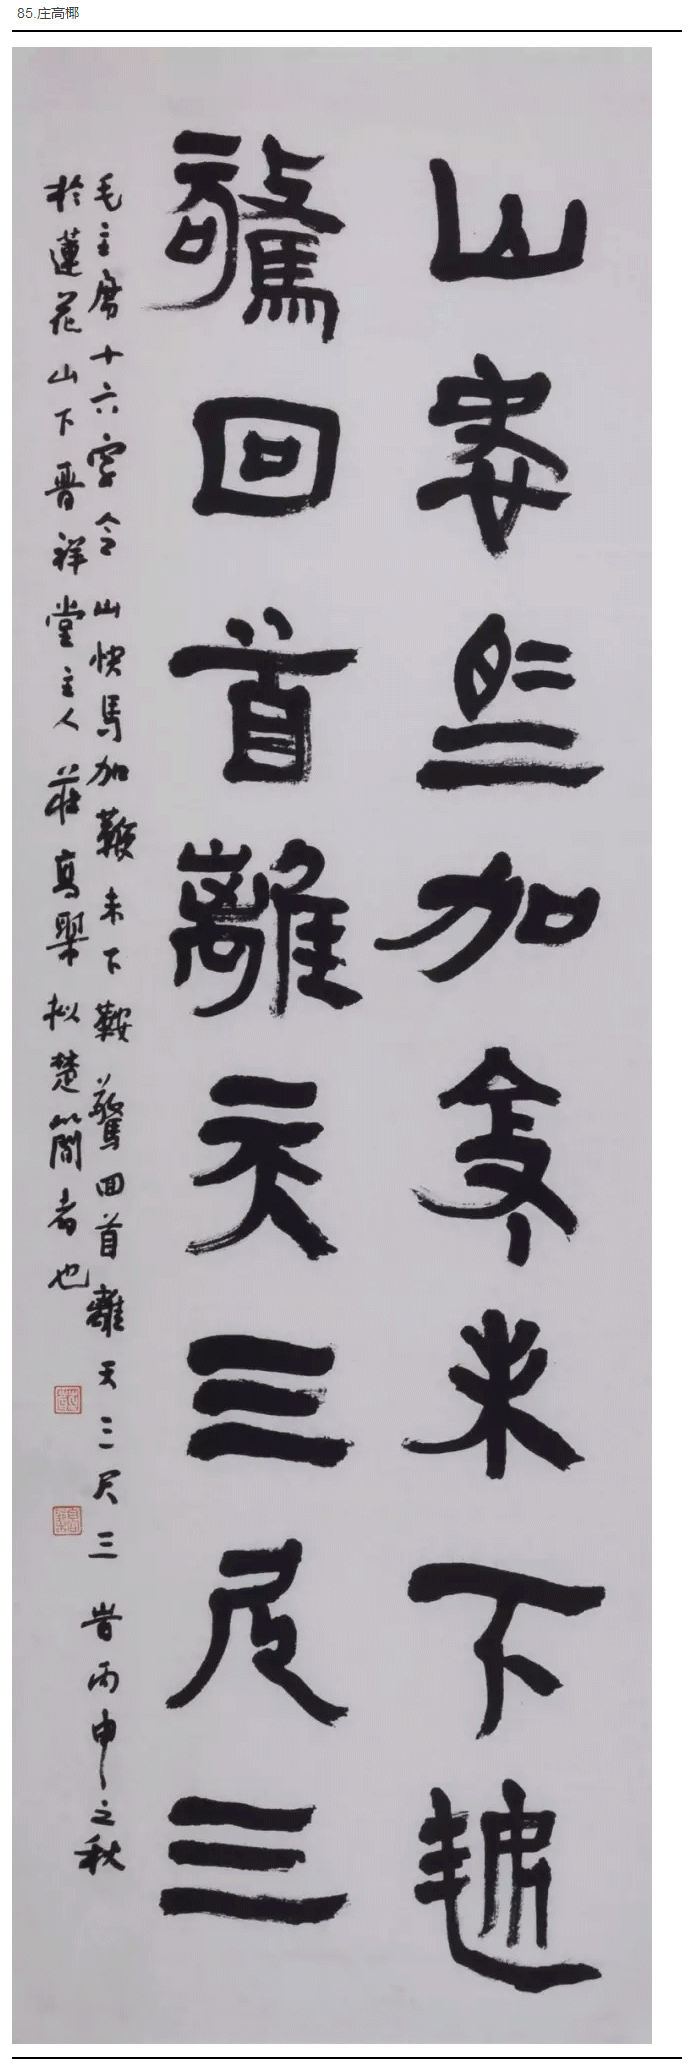 85.庄高椰
山快馬加鞭未下鞍
驚回首離天三尺三
毛主席十六字令 山快馬加鞭未下鞍驚回首離天三尺三 旹丙申之秋
於蓮花山下晋祥堂主人莊高 拟楚簡者也